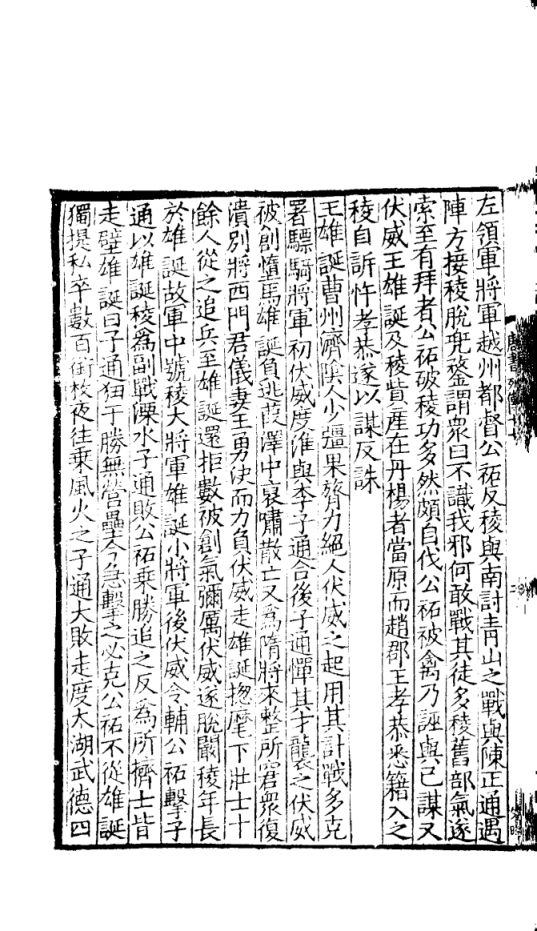 左領軍將軍越州都督公祏反稜與南討青山之戰與陳正通遇
陣方接稜脫兜鍪謂衆曰不識我邪何敢戰其徒多稜舊部氣遂
索至有拜者公祏破稜功多然頗自伐公祏被禽乃誣與己謀又
伏威王雄誕及稜貲產在丹楊者當原而趙郡王孝恭悉籍入之
稜自訴忤孝恭遂以謀反誅
王雄誕曹州濟陰人少彊果膂力絕人伏威之起用其計戰多克
署驃騎將軍初伏威度淮與李子通合後子通憚其才襲之伏威
被創墮馬雄誕負逃葭澤中裒嘯散亡又爲隋將來整所窘衆復
潰別將西門君儀妻王勇决而力負伏威走雄誕揔麾下壯士十
餘人從之追兵至雄誕還拒數被創氣彌厲伏威遂脫闞稜年長
於雄誕故軍中號稜大將軍雄誕小將軍後伏威令輔公祏擊子
通以雄誕稜爲副戰溧水子通敗公祏乗勝追之反爲所擠士皆
走壁雄誕曰子通狃于勝無營壘今急擊之必克公祏不從雄誕
獨提私卒數百銜枚夜往乗風火之子通大敗走度太湖武德四